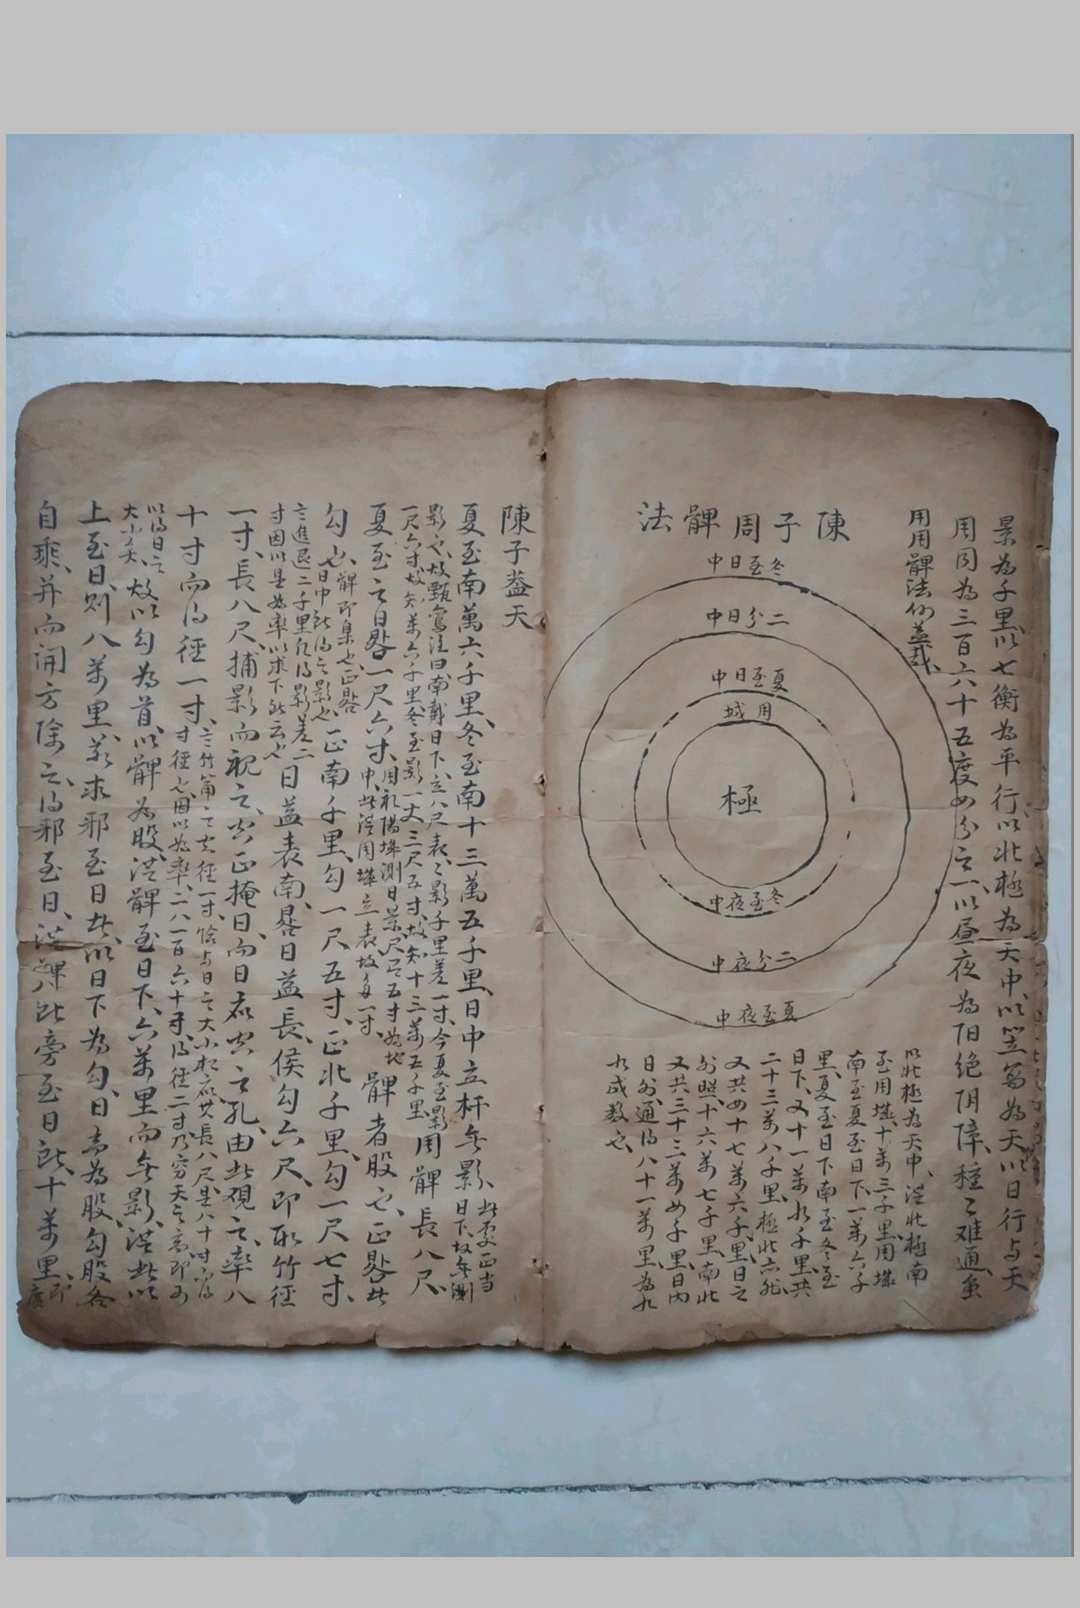 景為千里以七衡為平行以北極為天中以笠寫為天以日行与天
周同為三百六十五度四分之一以昼夜為阳绝阴障種〻难通虽
用周髀法仍盖或
陳子周髀法
冬至日中
二分日中
夏至日中
周城
極
冬至夜中
二分夜中
夏至夜中
以北極為天中從北極南
至周城十萬三千里周城
南至夏至日下一萬六千
里夏至日下南至冬至
日下又十一萬九千里共
二十三萬八千里極北亦然
又共四十七萬六千里日之
外照十六萬七千里南北
又共三十三萬四千里日内
日外通得八十一萬里為九
九成数也
陳子盖天
夏至南萬六千里冬至南十三萬五千里日中立杆無影
此處正当
日下故無
影也故甄鸞法曰南戴日下立八尺表〻影千里差一寸今夏至影
一尺六寸故知萬六千里冬至影一丈三尺五寸故知十三萬五千里
用髀長八尺
夏至之日晷一尺六寸
髀者股也正晷此
勾也
髀即集也正晷
日中所得之影也
正南千里勾一尺五寸正北千里勾一尺七寸
言進退二千里仅得影差二
寸因以是為率以求下所云也
日益表南晷日益長侯勾六尺即取竹徑
一寸長八尺捕影而視之空正掩日而日应空之孔由此观之率八
十寸而得徑一寸
以得日之
大小矣
故以勾為首以髀為股從髀至日下六萬里而無影從此以
上至日則八萬里若求邪至日者以日下為勾日高為股勾股各
自乘并而開方除之得邪至日從髀所旁至日所十萬里